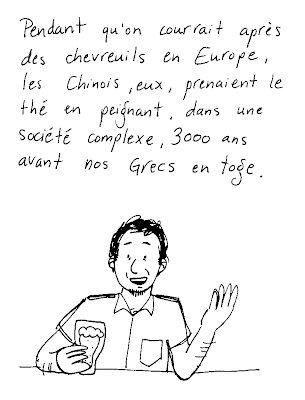 Pendant qu'on courrait après
des chevreuils en Europe,
les Chinois, eux, prenaient le
thé en peignant, dans une
société complexe, 3000 ans
avant nos Grecs en toge.